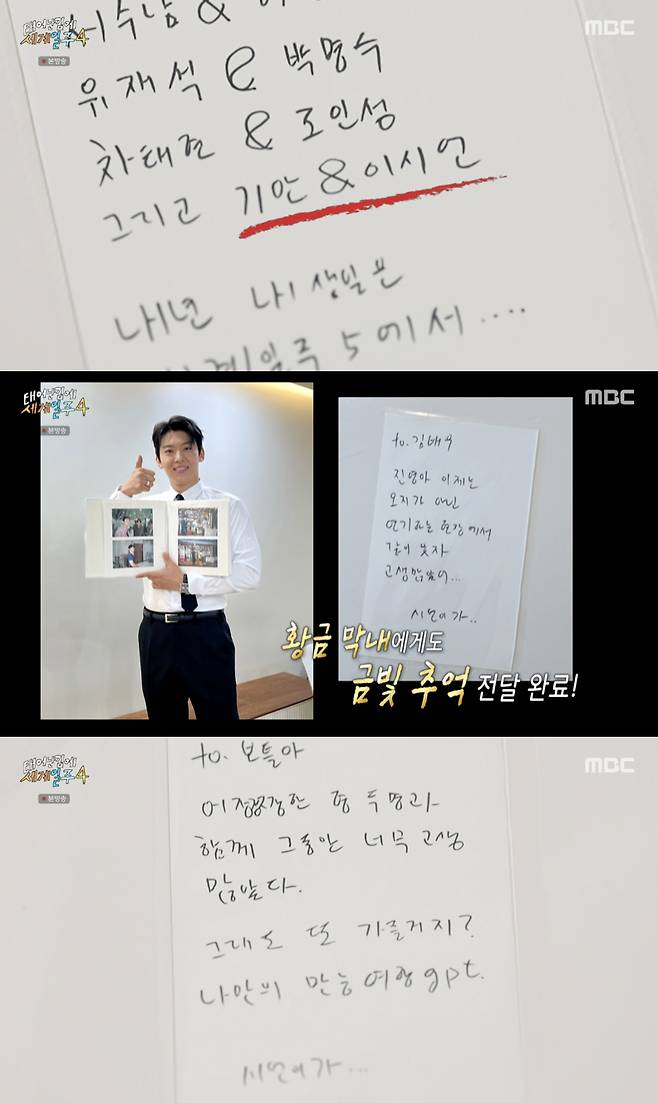 태어난김에
세계일주4
본방송
MBC
유재석 & 박명수
차태현 & 조인성
그리고 기안&이시언
내년 내 생일은
계일주 5에서....
태어난김에
세계일주4
본방송
MBC
to. 김배우
진영아 이제는
오지가 아닌
연기하는 현장에서
같이 놀자
고생많았어...
시언이가..
황금 막내에게도
금빛 추억 전달 완료!
태어난김에
세계일주4
본방송
MBC
to. 보틀아
어정쩡한 형 두명과
함께 그동안 너무 고생
많았다.
그래도 또 가줄거지?
나만의 만능여행gpt.
시언이가...